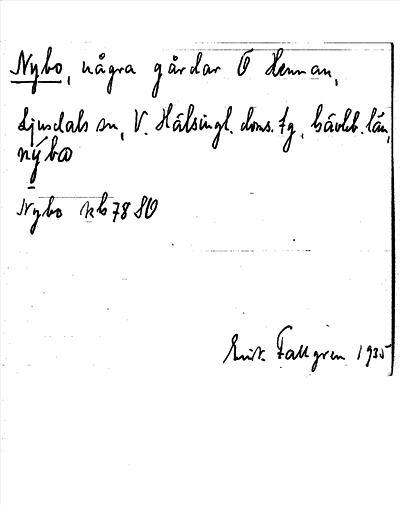 Nybo, några gårdar Ö Hennan,
Ljusdals sn, V. Hälsingl. doms. tg, Gävleb. län,
nýbω
Nybo kb 78 SO
Erik Fallgren 1935